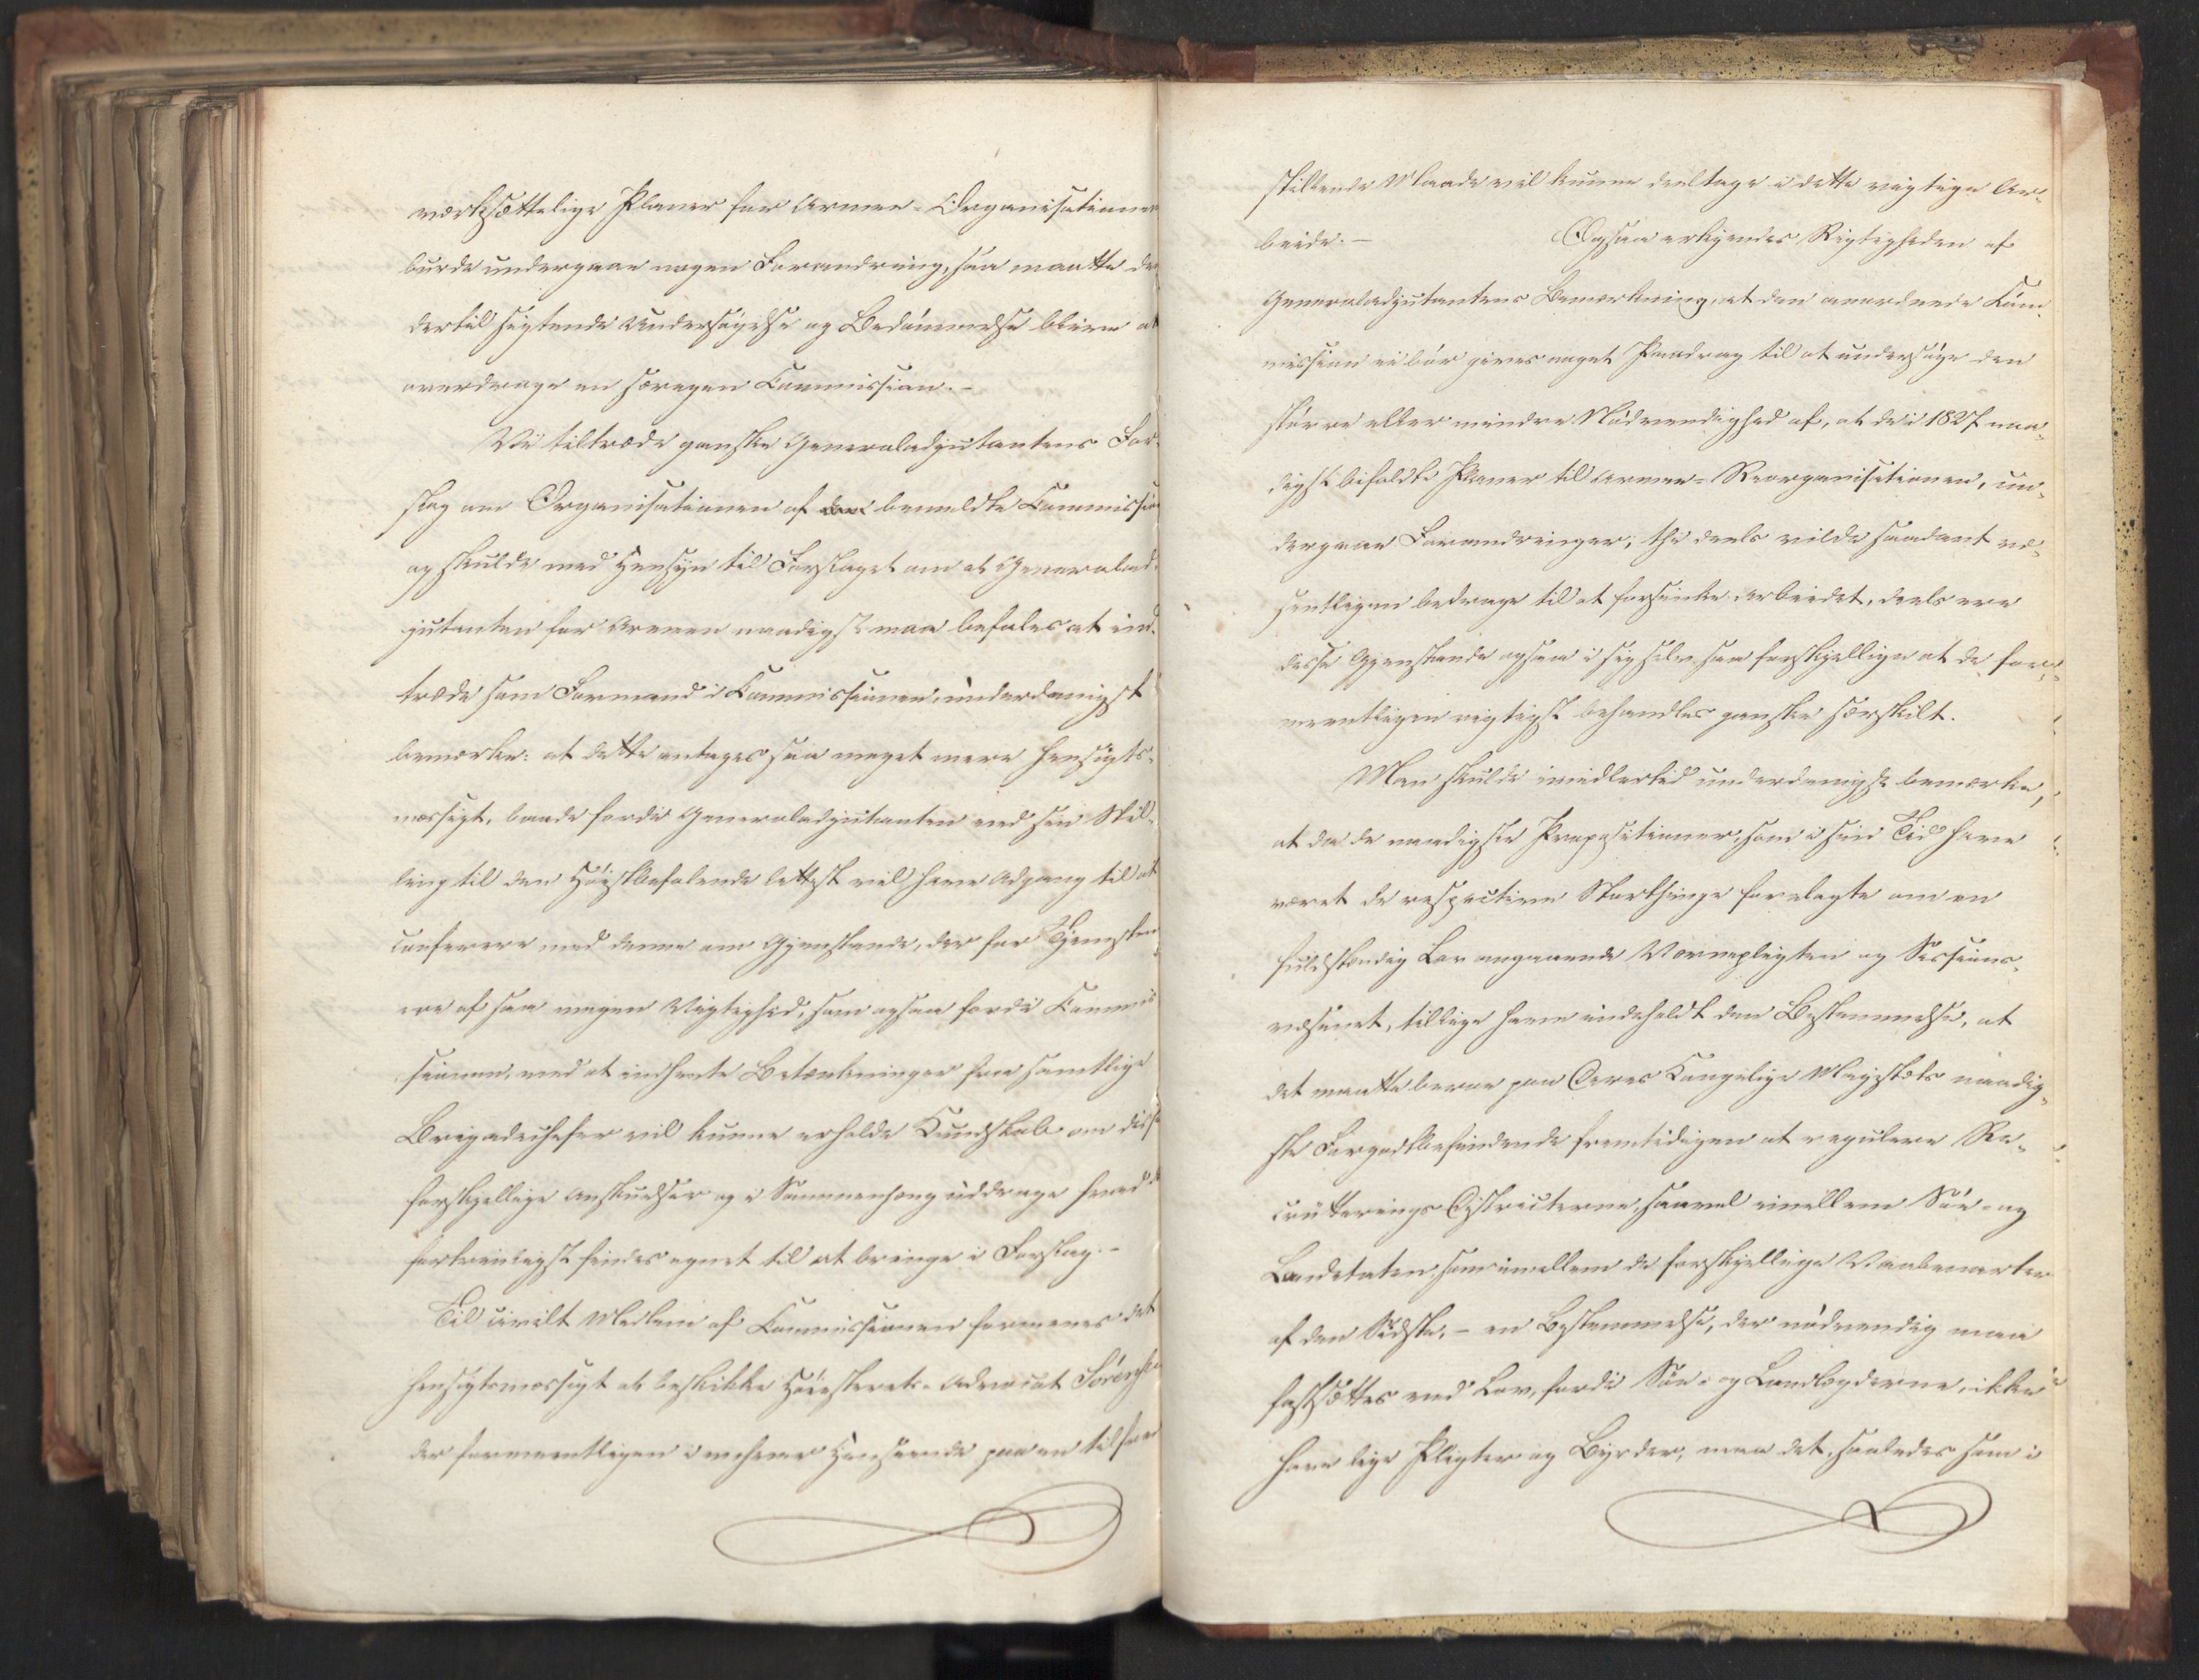 værksættelige Planer for Armee-Organisationen
burde undergaae nogen Forandring, saa maatte den
dertil sigtende Undersøgelse og Bedømmelse blive at
overdrage en særegen Commission.-
Vi tiltræde ganske Generaladjutantens For-
slag om Organisationen af den bemeldte Commission
og skulde med Hensyn til Forslaget om at Generalad-
jutanten for Armeen naadigst maa befales at ind-
træde som Formand i Commissionen, underdanigst
bemærke: at dette antages saa meget mere hensigts-
mæssigt, baade fordi Generaladjutanten ved sin Stil-
ling til den Høistbefalende lettest vil have Adgang til at
conferere med denne om Gjenstande, der for Tjenesten
ere af saa megen Vigtighed, som ogsaa fordi Commis
sionen, ved at indhente Betænkninger fra samtlige
Brigadechefer vil kunne erholde Kundskab om disse
forskjellige Anskuelser og i Sammenhæng uddrage hvad der
fortrinligst findes egnet til at bringe i Forslag.-
Til civilt Medlem af Commissionen formenes det
hensigtsmæssigt at beskikke Høiesterets-Advocat Sørensen
der formeentligen i enhver Henseende paa en tilfreds
stillende Maade vil kunne deeltage i dette vigtige Ar-
beide.- Ogsaa erkjendes Rigtigheden af
Generaladjutantens Bemærkning, at den anordnede Com-
mission ei bør gives noget Paadrag til at undersøge den
større eller mindre Nødvendighed af, at de i 1827 naa-
digst bifaldte Planer til Armee-Reorganisationen, un-
dergaae Forandringer; thi deels vilde saadant væ-
sentligen bedrage til at forsinke Arbeidet, deels ere
disse Gjenstande ogsaa i sig selv saa forskjellige at de for-
meentligen rigtigst behandles ganske særskilt.
Man skulde imidlertid underdanigst bemærke,
at da de naadigste Propositioner, som i sin Tid have
været de respective Storthinge forelagte om en
fuldstændig Lov angaaende Værnepligten og Sessions-
væsenet, tillige have indeholdt den Bestemmelse, at
det maatte beroe paa Deres Kongelige Majestæts naadig-
ste Forgodtbefindende fremtidigen at regulere Re-
crutterings Districterne, saavel imellem Søe- og
Landetaten som imellem de forskjellige Vaabenarter
af den Sidste,- en Bestemmelse, der nødvendig maa
fastsættes ved Lov, fordi Søe- og Landlægderne, ikke
have lige Pligter og Byrder, maa det, saaledes som i